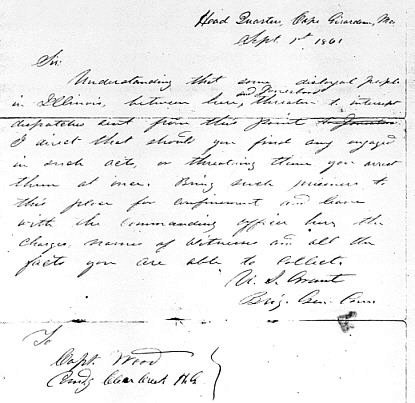 Head Quarters, Cape Girardeau, Mo.
Sept. 1st 1861
Sir:
Understanding that some disloyal people
in Illinois, between here, and Jonesboro threaten to intercept
dispatches sent from this point to Jonesboro
I direct that should you find any engaged
in such acts, or threatning them you arrest
them at once. Bring such prisoners to
this place for confinement and leave
with the commanding officer here the
charges, names of witnesses and all the
facts you are able to collect.
U. S. Grant
Brig. Gen. Com
To
Capt. Wood
Comdg Clear Creek